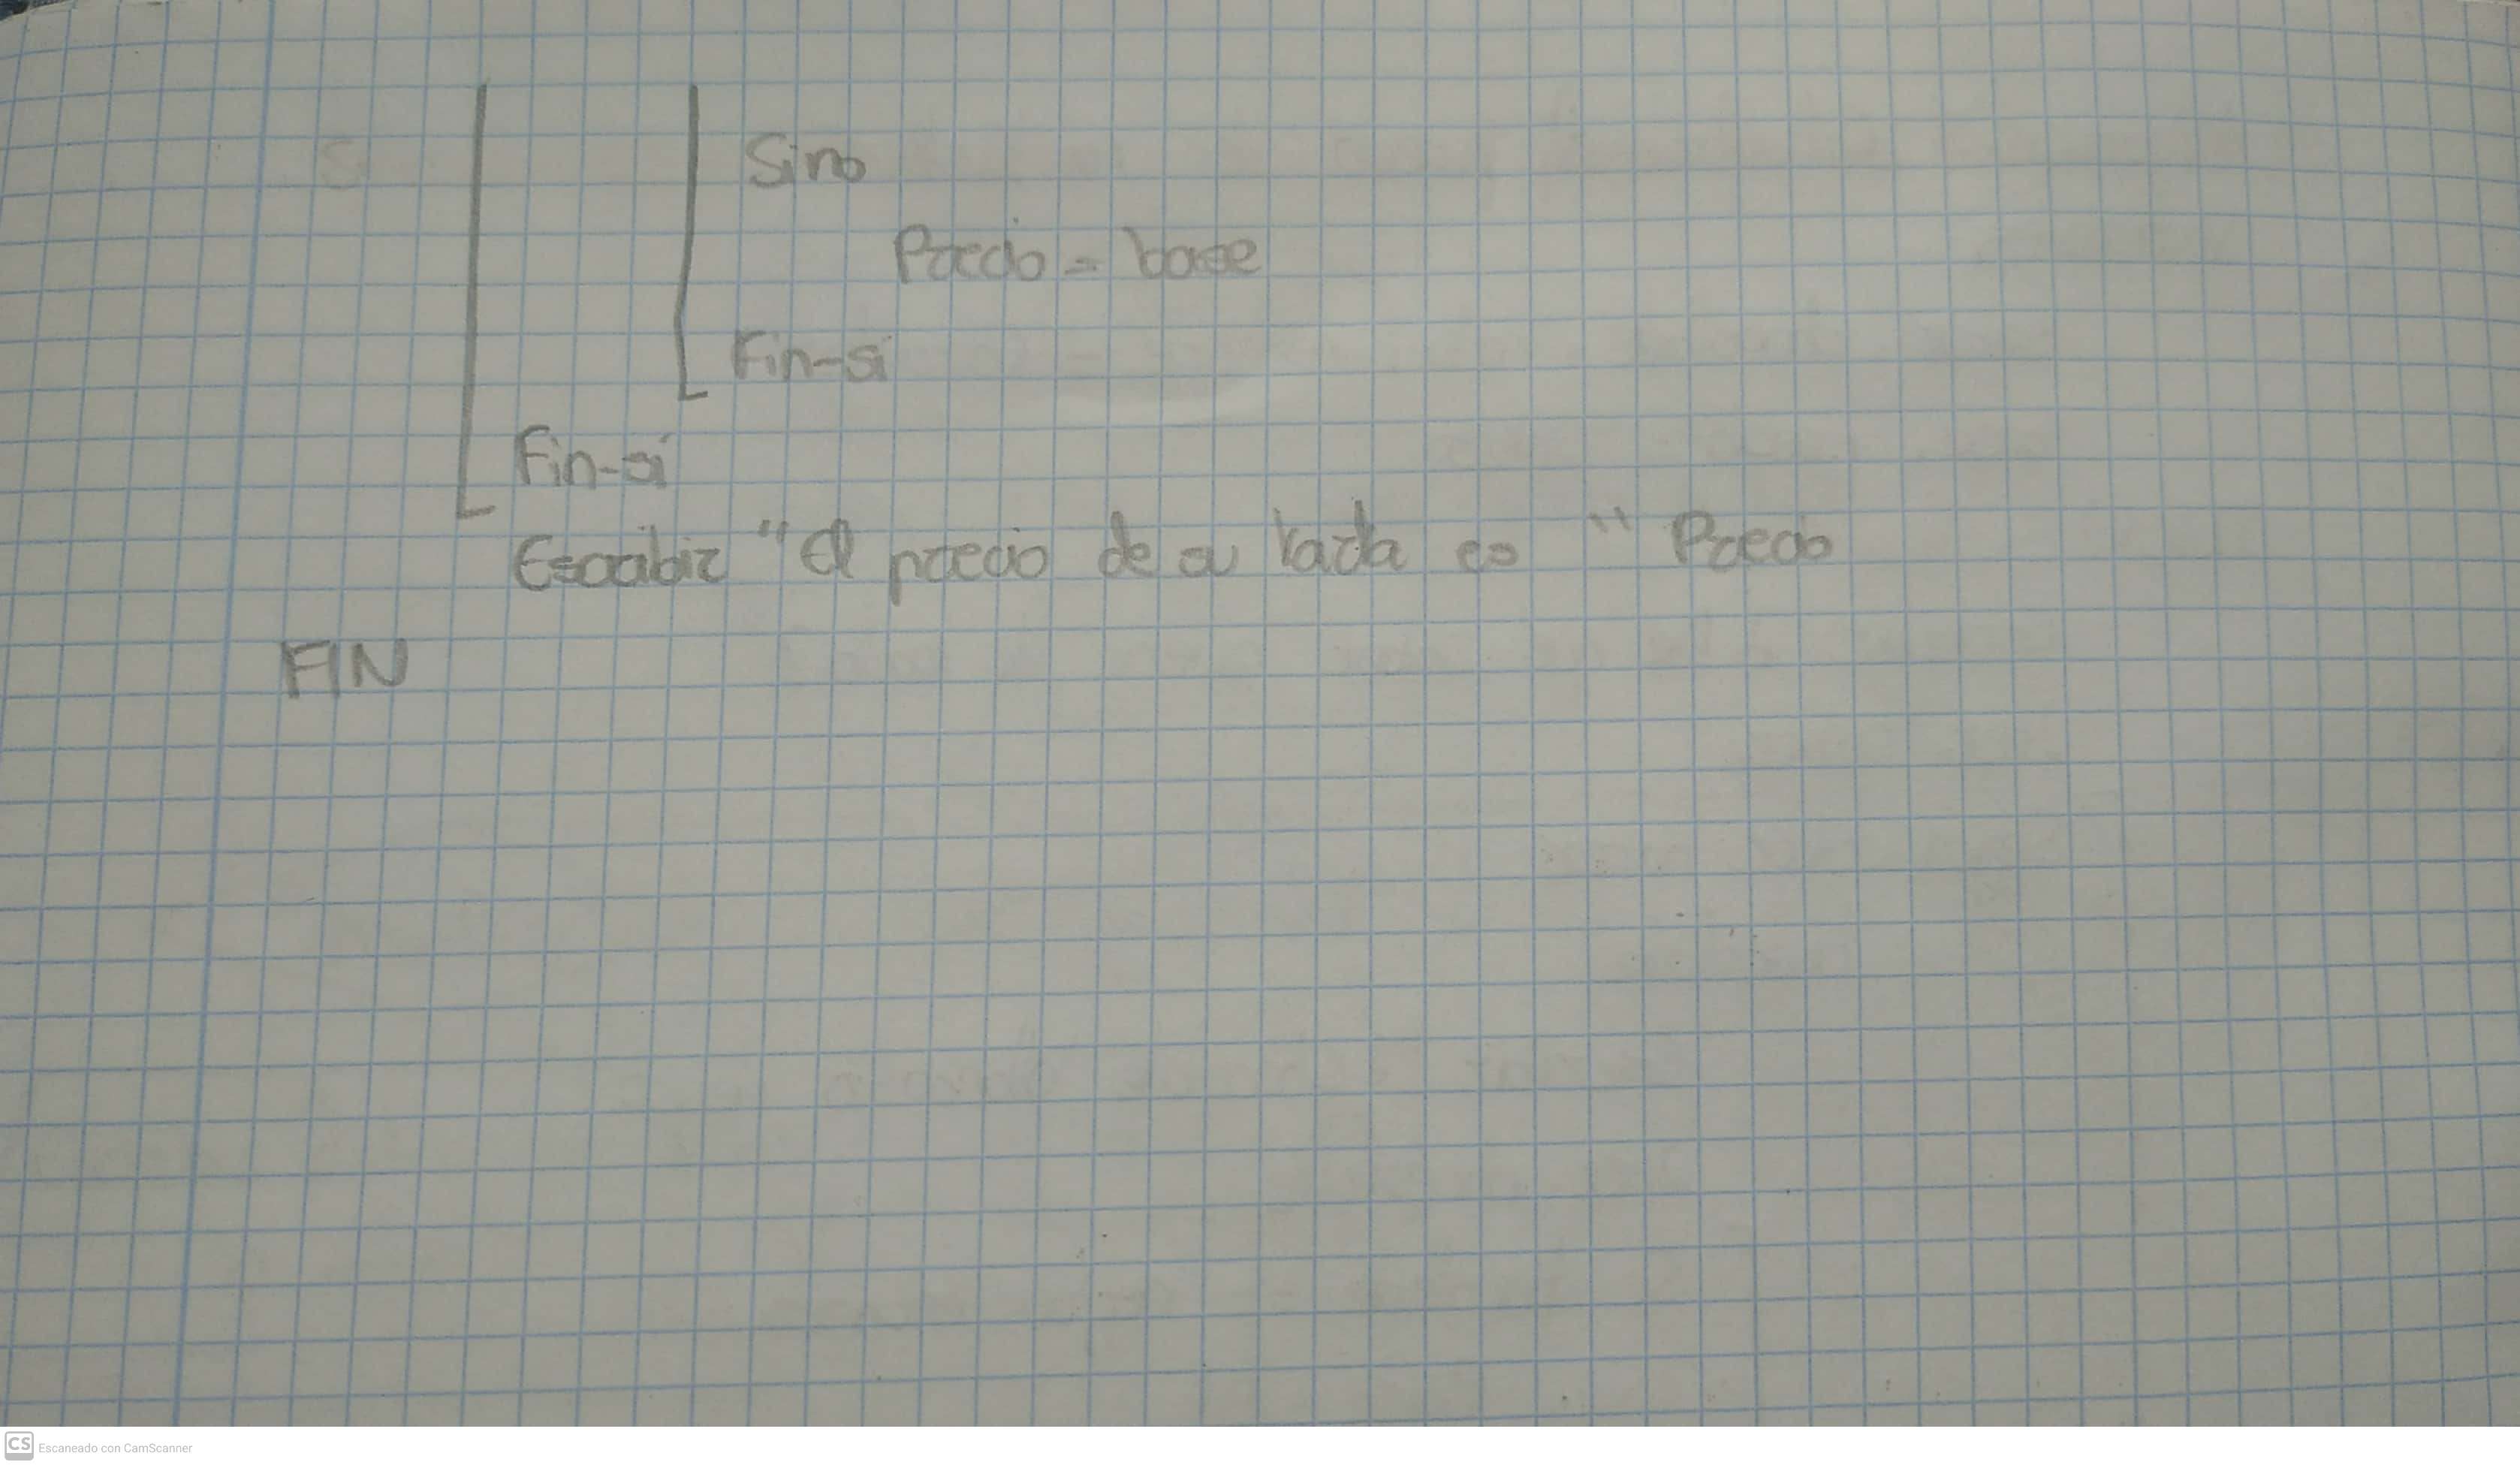 Sino
Precio = base
Fin-si
Fin-si
Escribir "El precio de su lada es " Precio
FIN
CS Escaneado con CamScanner